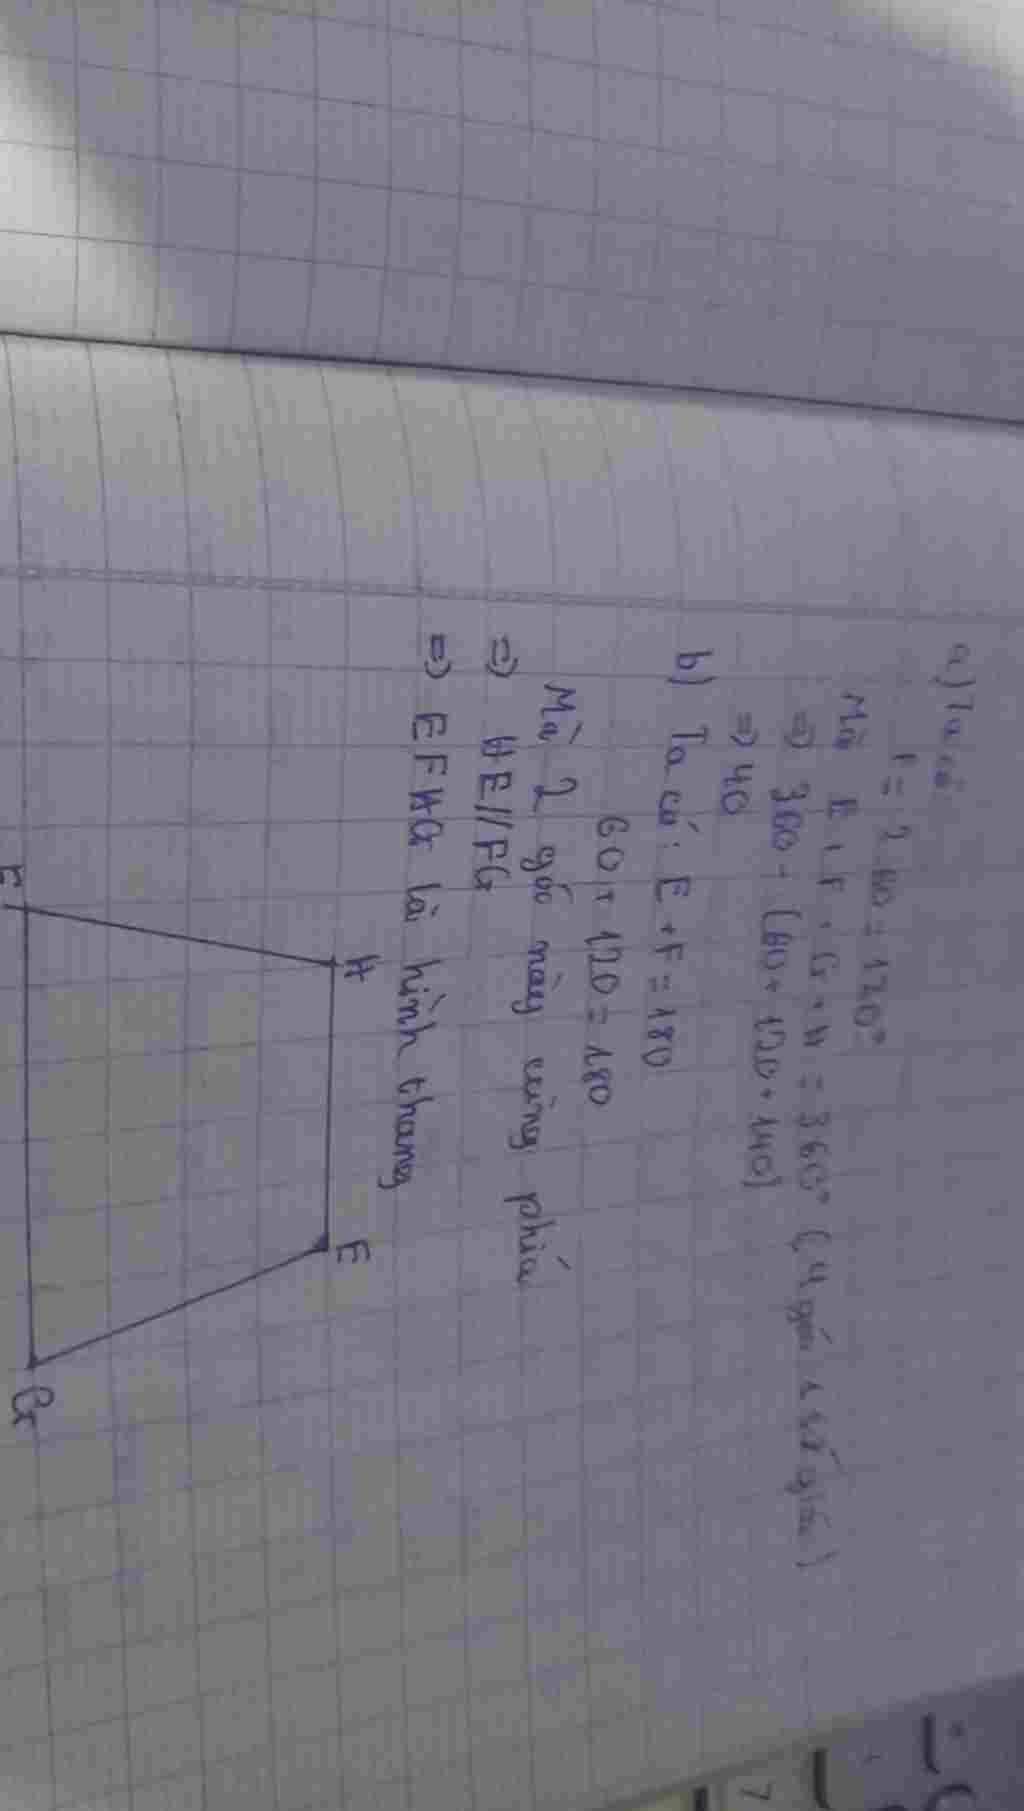 a) Ta có:
F = 2.60 = 120°
Mà E + F + G + H = 360° (4 góc 1 tứ giác)
=> 360 - (60 + 120 + 140)
=> 40
b) Ta có: E + F = 180
60 + 120 = 180
Mà 2 góc này cùng phía
=> HE//FG
=> EFHG là hình thang
H E
F G